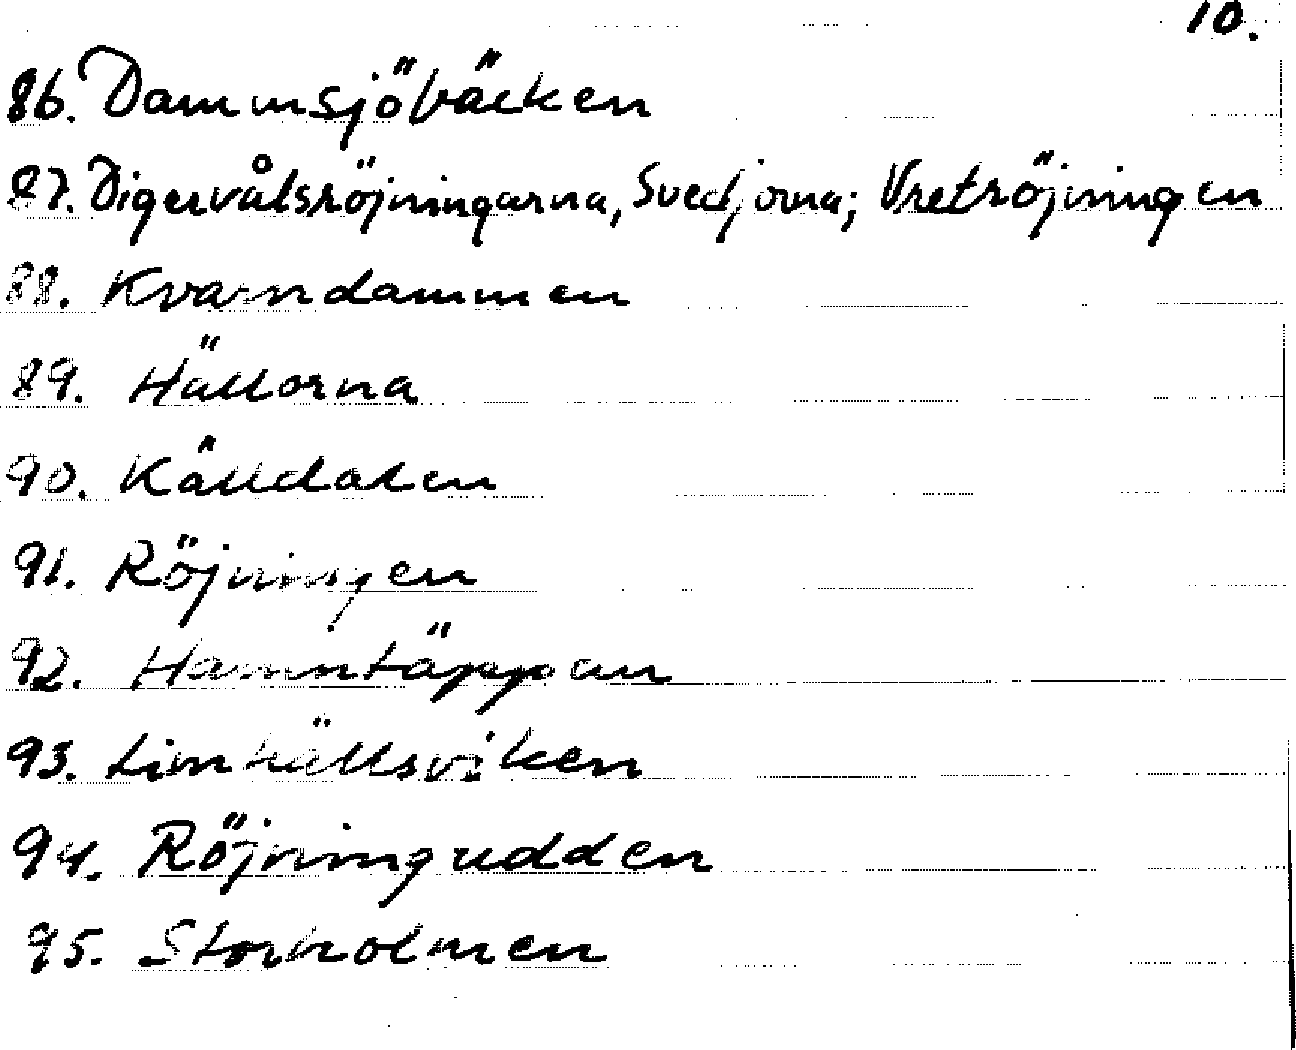 10.
86. Dammsjöbäcken
87. Digervålsröjningarna, Svedjorna; Vretröjningen
88. Kvarndammen
89. Hällorna
90. Källdalen
91. Röjningen
92. Hamntäppan
93. Limhällsviken
94. Röjningudden
95. Storholmen